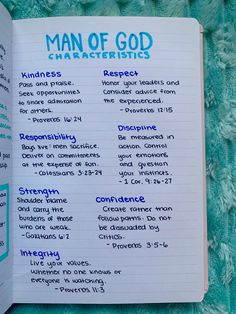 MAN OF GOD
CHARACTERISTICS
Kindness
Pause and praise.
Seek opportunities
to share admiration
for others.
- Proverbs 16:24
Respect
Honor your leaders and
Consider advice from
the experienced.
- Proverbs 12:15
Responsibility
Boys live: men sacrifice.
Deliver on commitments
at the expense of fun.
- Colossians 3:23-24
Discipline
Be measured in
action. Control
your emotions
and question
your instincts.
- 1 Cor. 9:26-27
Strength
Shoulder blame
and carry the
burdens of those
who are weak.
- Galatians 6:2
Confidence
Create rather than
follow paths. Do not
be dissuaded by
critics.
- Proverbs 3:5-6
Integrity
Live your values.
Whether no one knows or
everyone is watching.
- Proverbs 11:3